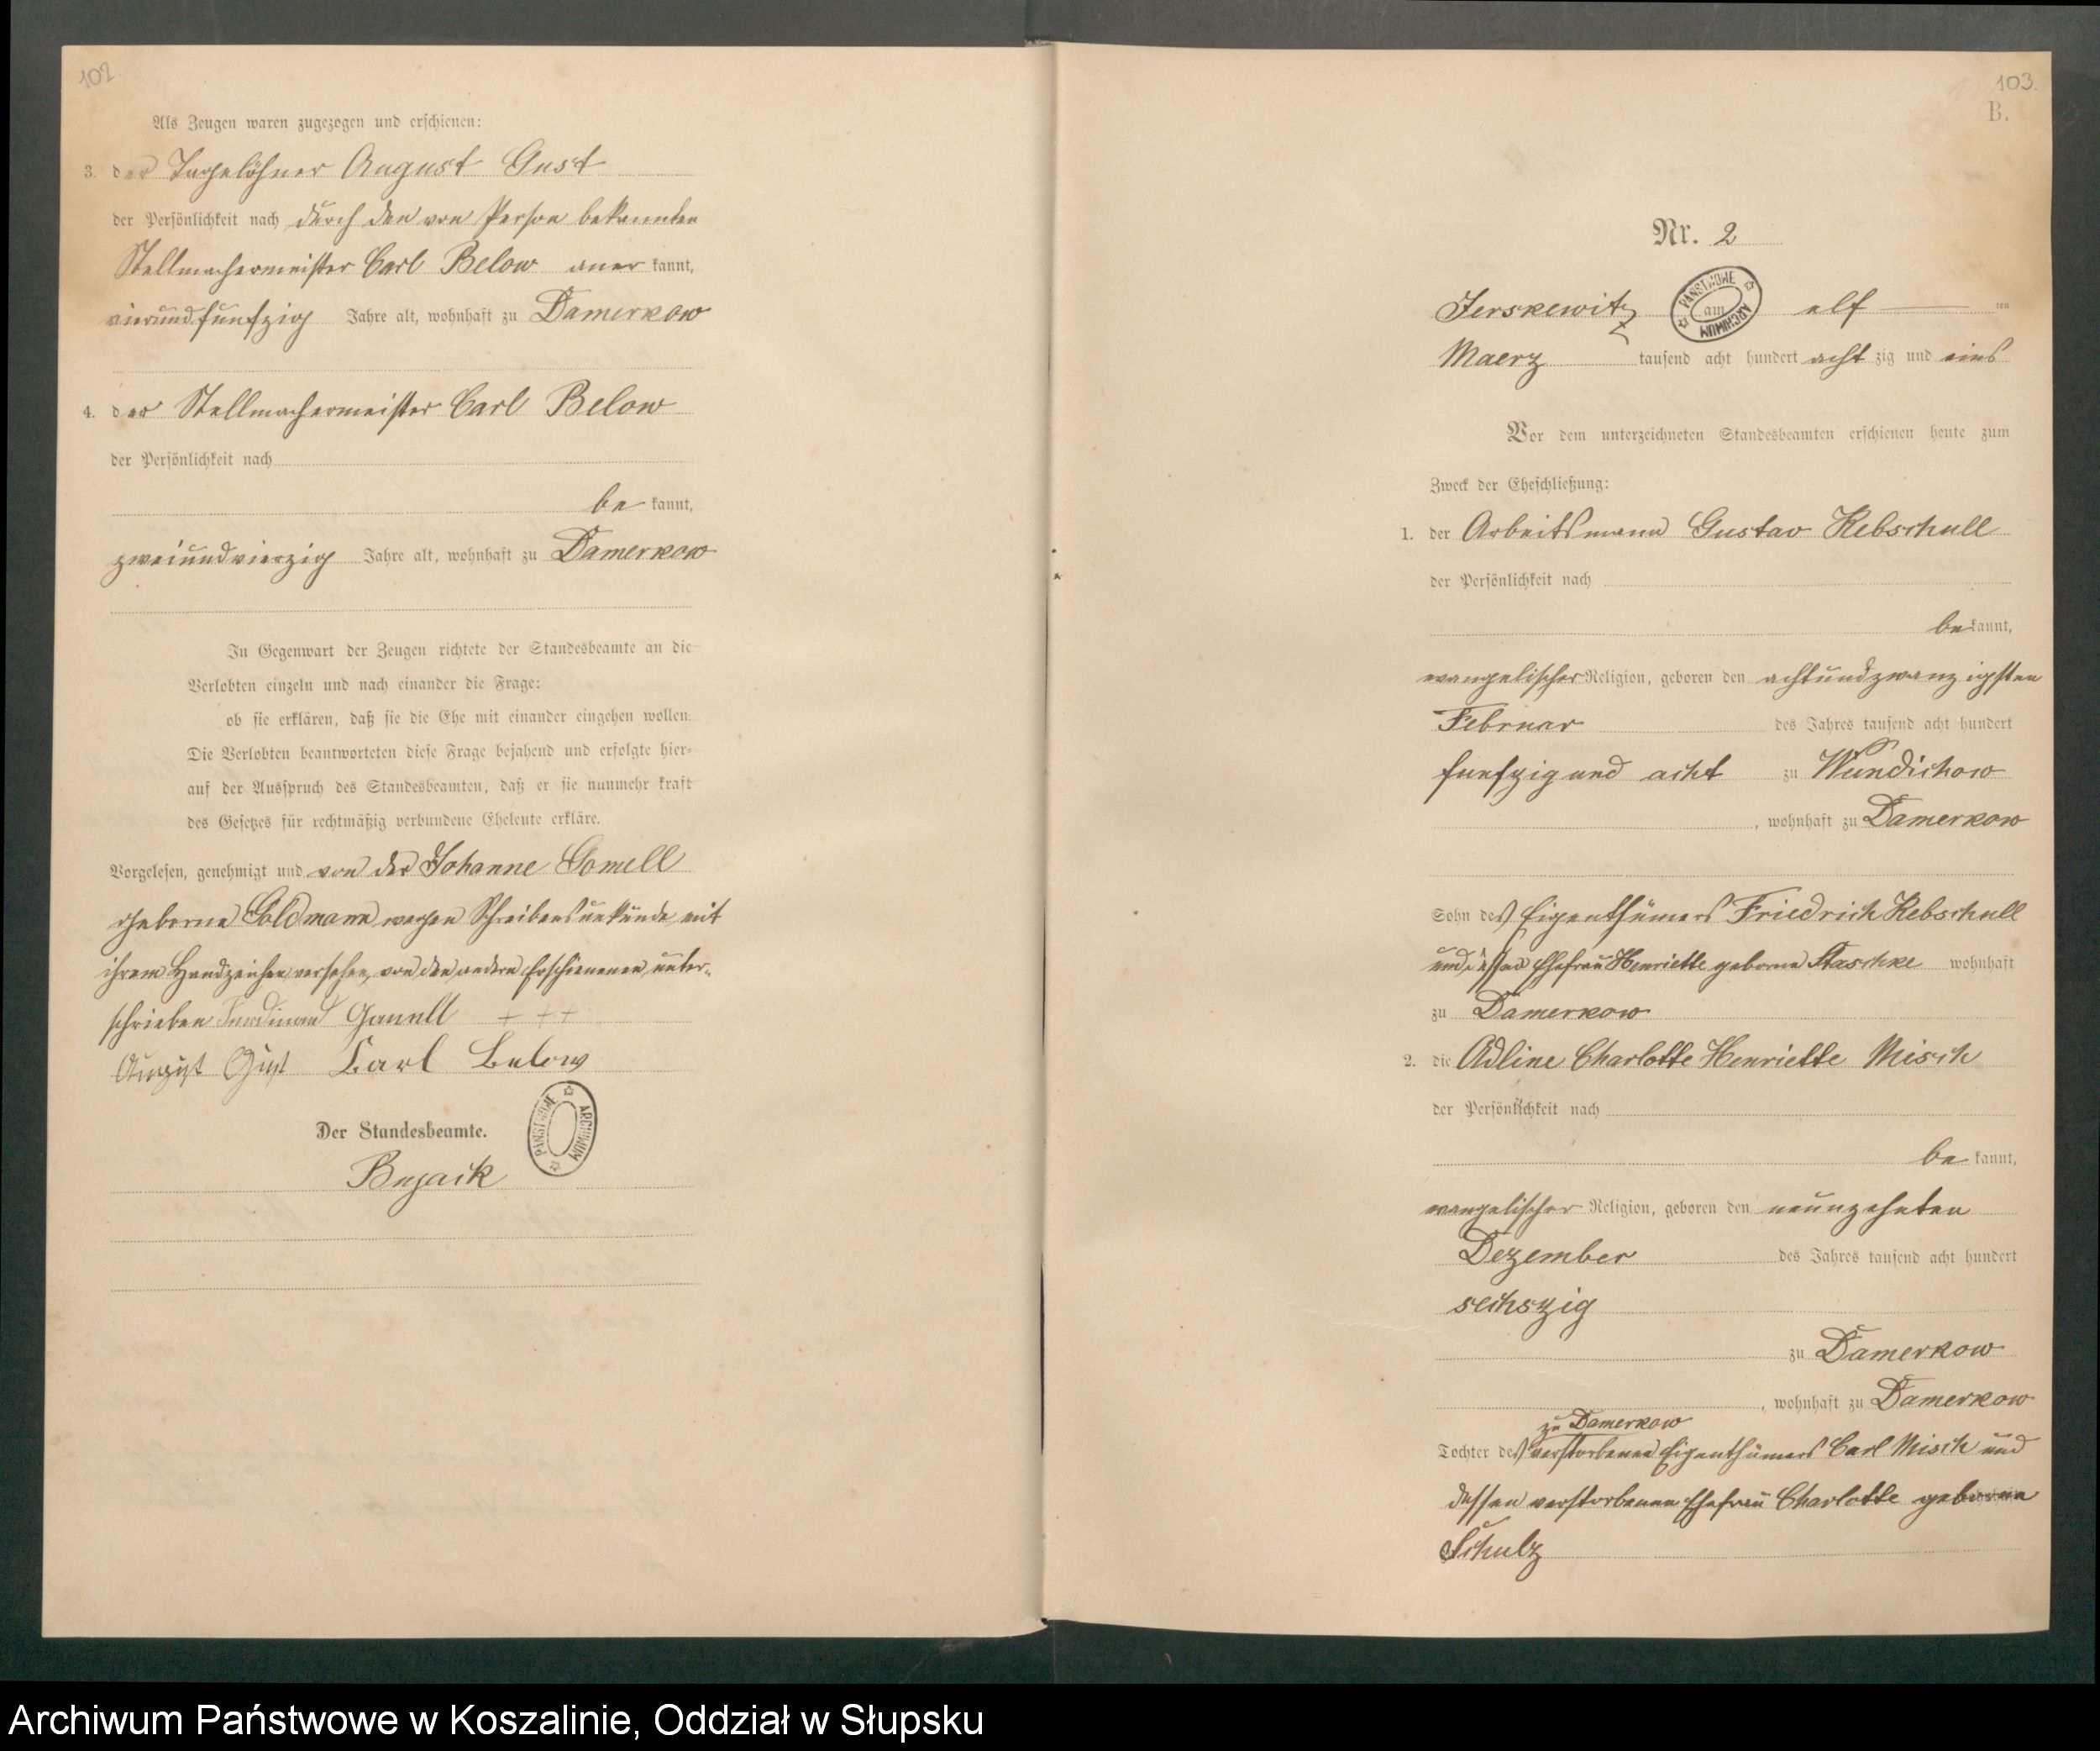 102
Als Zeugen waren zugezogen und erschienen:
3. der Tagelöhner August Gust
der Persönlichkeit nach durch den von Person bekannten
Stellmachermeister Carl Below aner kannt,
vierundfünfzig Jahre alt, wohnhaft zu Damerkow
4. der Stellmachermeister Carl Below
der Persönlichkeit nach
be kannt,
zweiundvierzig Jahre alt, wohnhaft zu Damerkow
In Gegenwart der Zeugen richtete der Standesbeamte an die
Verlobten einzeln und nach einander die Frage:
ob sie erklären, daß sie die Ehe mit einander eingehen wollen.
Die Verlobten beantworteten diese Frage bejahend und erfolgte hier-
auf der Ausspruch des Standesbeamten, daß er sie nunmehr kraft
des Gesetzes für rechtmäßig verbundene Eheleute erkläre.
Vorgelesen, genehmigt und von der Johanne
geborne Goldmann wegen Schreibensunkunde mit
ihrem Handzeichen versehen, von den andern Erschienenen unter-
schrieben Ferdinand +++
August Gust Carl Below
Der Standesbeamte.
ARCHIWUM PAŃSTWOWE
103.
B.
Nr. 2
Jerskewitz am elf ten
ARCHIWUM PAŃSTWOWE
Maerz tausend acht hundert acht zig und eins
Vor dem unterzeichneten Standesbeamten erschienen heute zum
Zweck der Eheschließung:
1. der Arbeitsmann Gustav Kebschull
der Persönlichkeit nach
be kannt,
evangelischer Religion, geboren den achtundzwanzigsten
Februar des Jahres tausend acht hundert
funfzig und acht zu Wundichow
, wohnhaft zu Damerkow
Sohn des Eigenthümers Friedrich Kebschull
und dessen Ehefrau Henriette geborne wohnhaft
zu Damerkow
2. die Adline Charlotte Henriette Misch
der Persönlichkeit nach
be kannt,
evangelischer Religion, geboren den neunzehnten
Dezember des Jahres tausend acht hundert
sechszig
zu Damerkow
, wohnhaft zu Damerkow
zu Damerkow
Tochter des verstorbenen Eigenthümers Carl Misch und
dessen verstorbenen Ehefrau Charlotte geborne
Schulz
Archiwum Państwowe w Koszalinie, Oddział w Słupsku